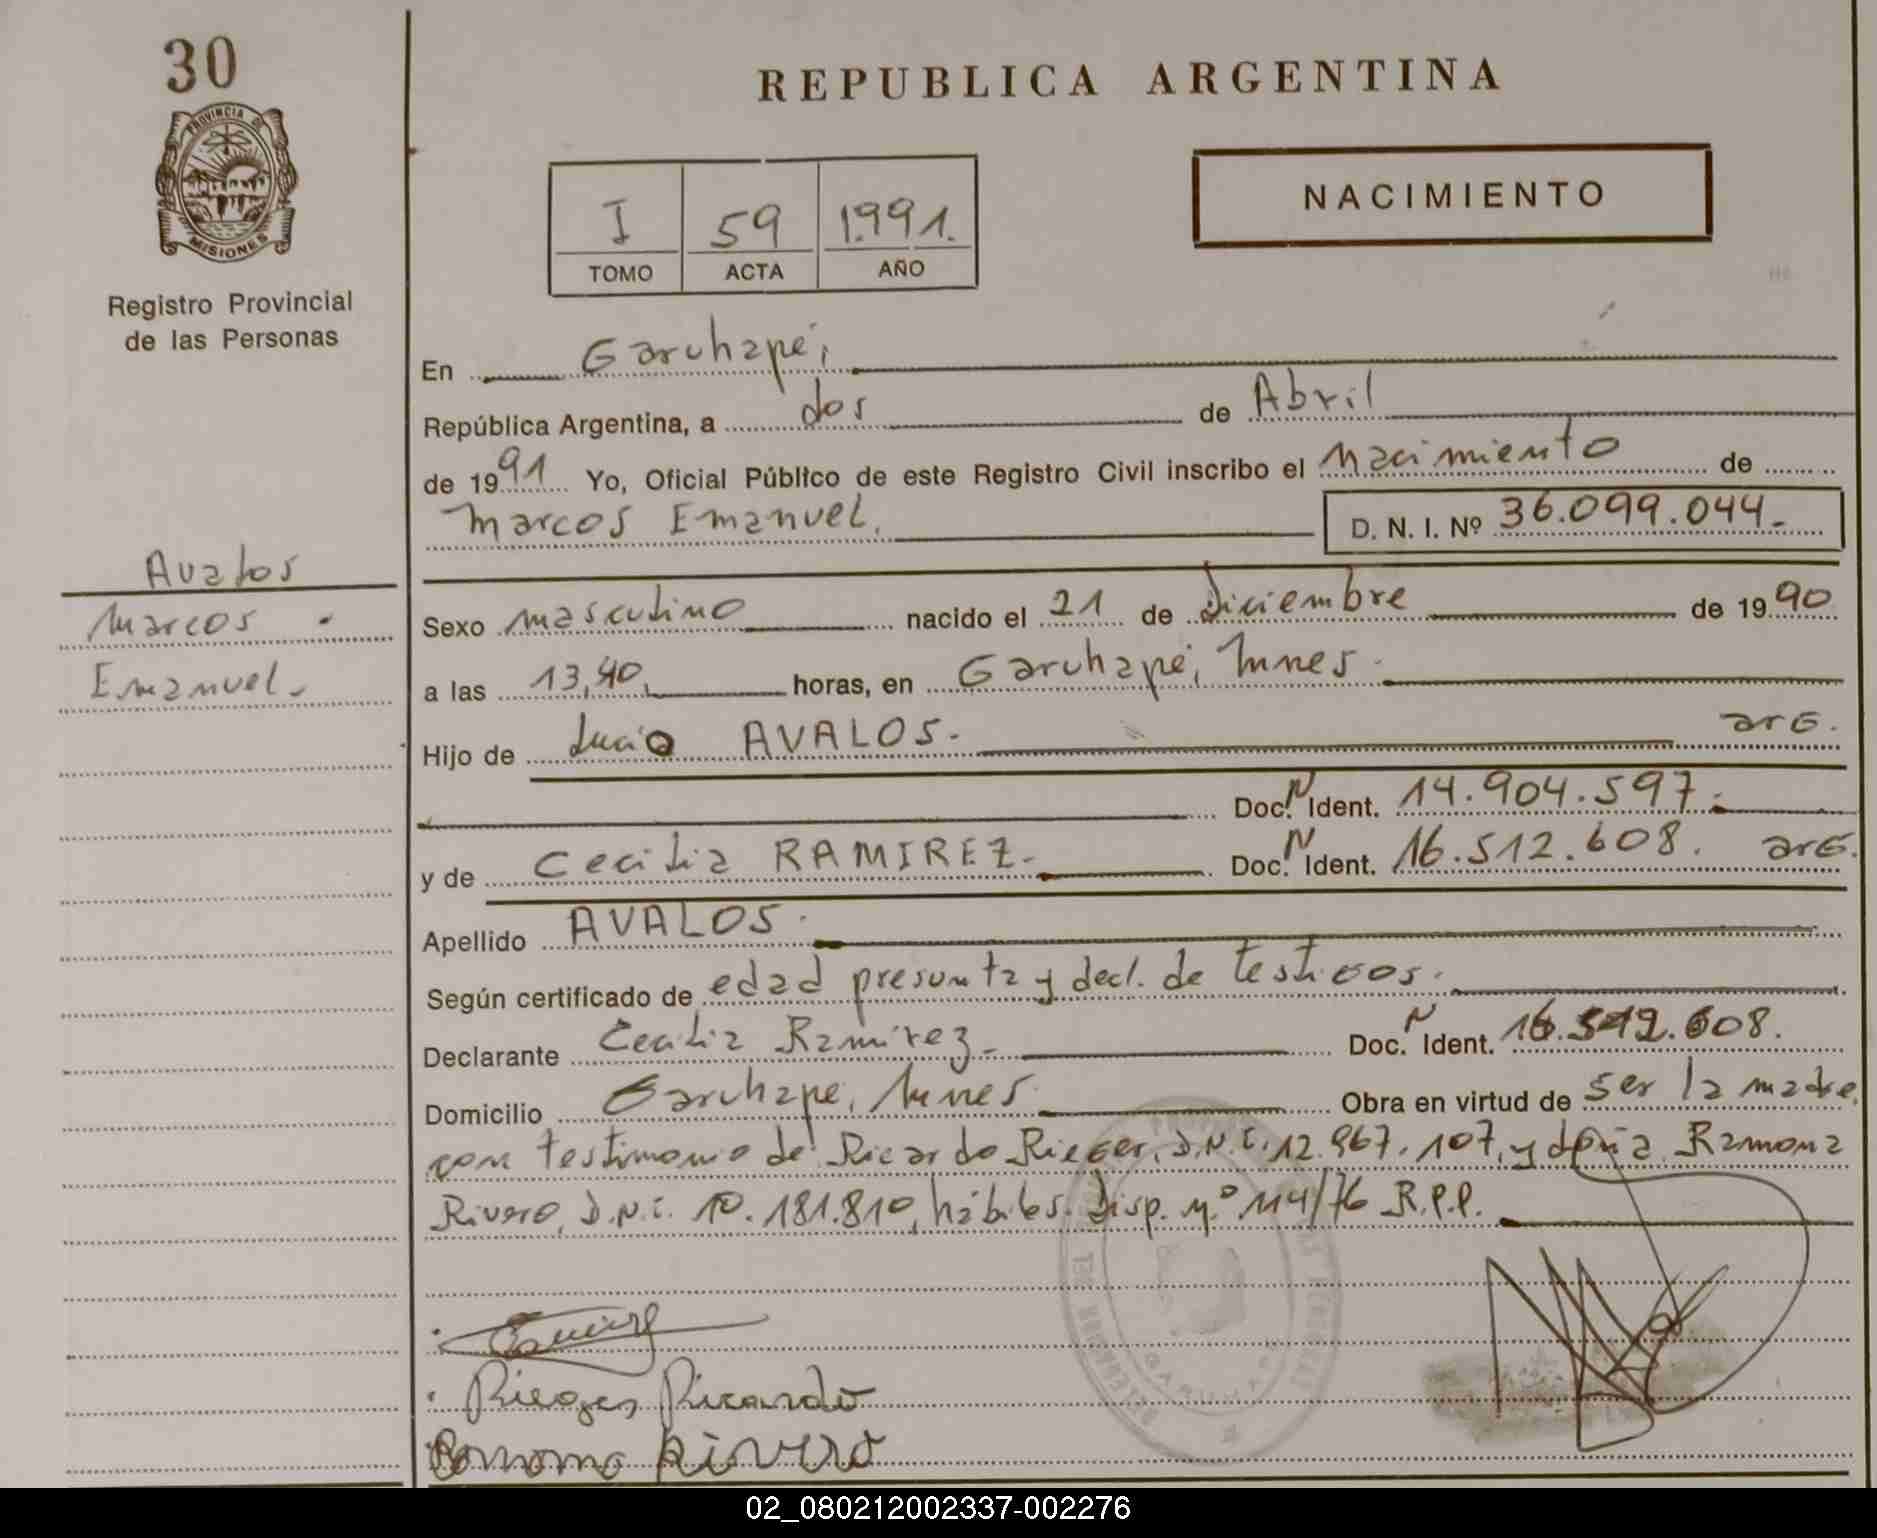 30
PROVINCIA DE
MISIONES
Registro Provincial
de las Personas
REPUBLICA ARGENTINA
I 59 1.991.
TOMO ACTA AÑO
NACIMIENTO
En Garuhapé,
República Argentina, a dos de Abril
de 1991 Yo, Oficial Público de este Registro Civil inscribo el nacimiento de
Marcos Emanuel. D. N. I. Nº 36.099.044.-
Avalos
Marcos
Emanuel.
Sexo masculino nacido el 21 de diciembre de 1990
a las 13,40, horas, en Garuhapé, Mnes.
Hijo de Lucio AVALOS.- arg.
Doc. N Ident. 14.904.597.-
y de Cecilia RAMIREZ.- Doc. N Ident. 16.512.608. arg.
Apellido AVALOS.
Según certificado de edad presunta y decl. de testigos.
Declarante Cecilia Ramirez.- Doc. N Ident. 16.512.608.
Domicilio Garuhapé, Mnes. Obra en virtud de ser la madre,
con testimonio de Ricardo Rieger, D.N.I. 12.967.107, y doña Ramona
Rivero, D.N.I. 10.181.810, hábiles. Disp. n.º 114/76 R.P.P.
Rieger Ricardo
Ramona Rivero
02_080212002337-002276